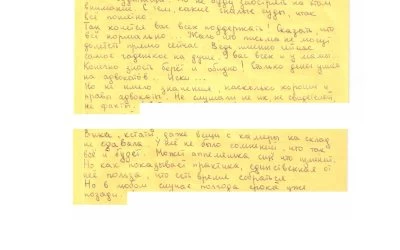 Но не буду заострять на этом
внимание с тем, какие
всё понятно.
Так хочется вас всех поддержать! Сказать, что
всё нормально... Жаль что письма не могут
долететь прямо сейчас. Ведь именно сейчас
самое гаденькое на душе у вас всех и у мамы.
Конечно злость берёт и обидно! Сколько денег ушло
на адвокатов.
Но не имело значения, насколько хороши и
правы адвокаты. Не слушали ни их, ни свидетелей,
ни факты.
Вика, кстати, даже вещи с камеры на склад
не сдавала. У неё не было сомнений, что так
всё и будет. Может аппеляшка скинет.
Но как показывает практика, единственная от
неё польза, что есть время собраться.
Но в любом случае полгода срока уже
позади.